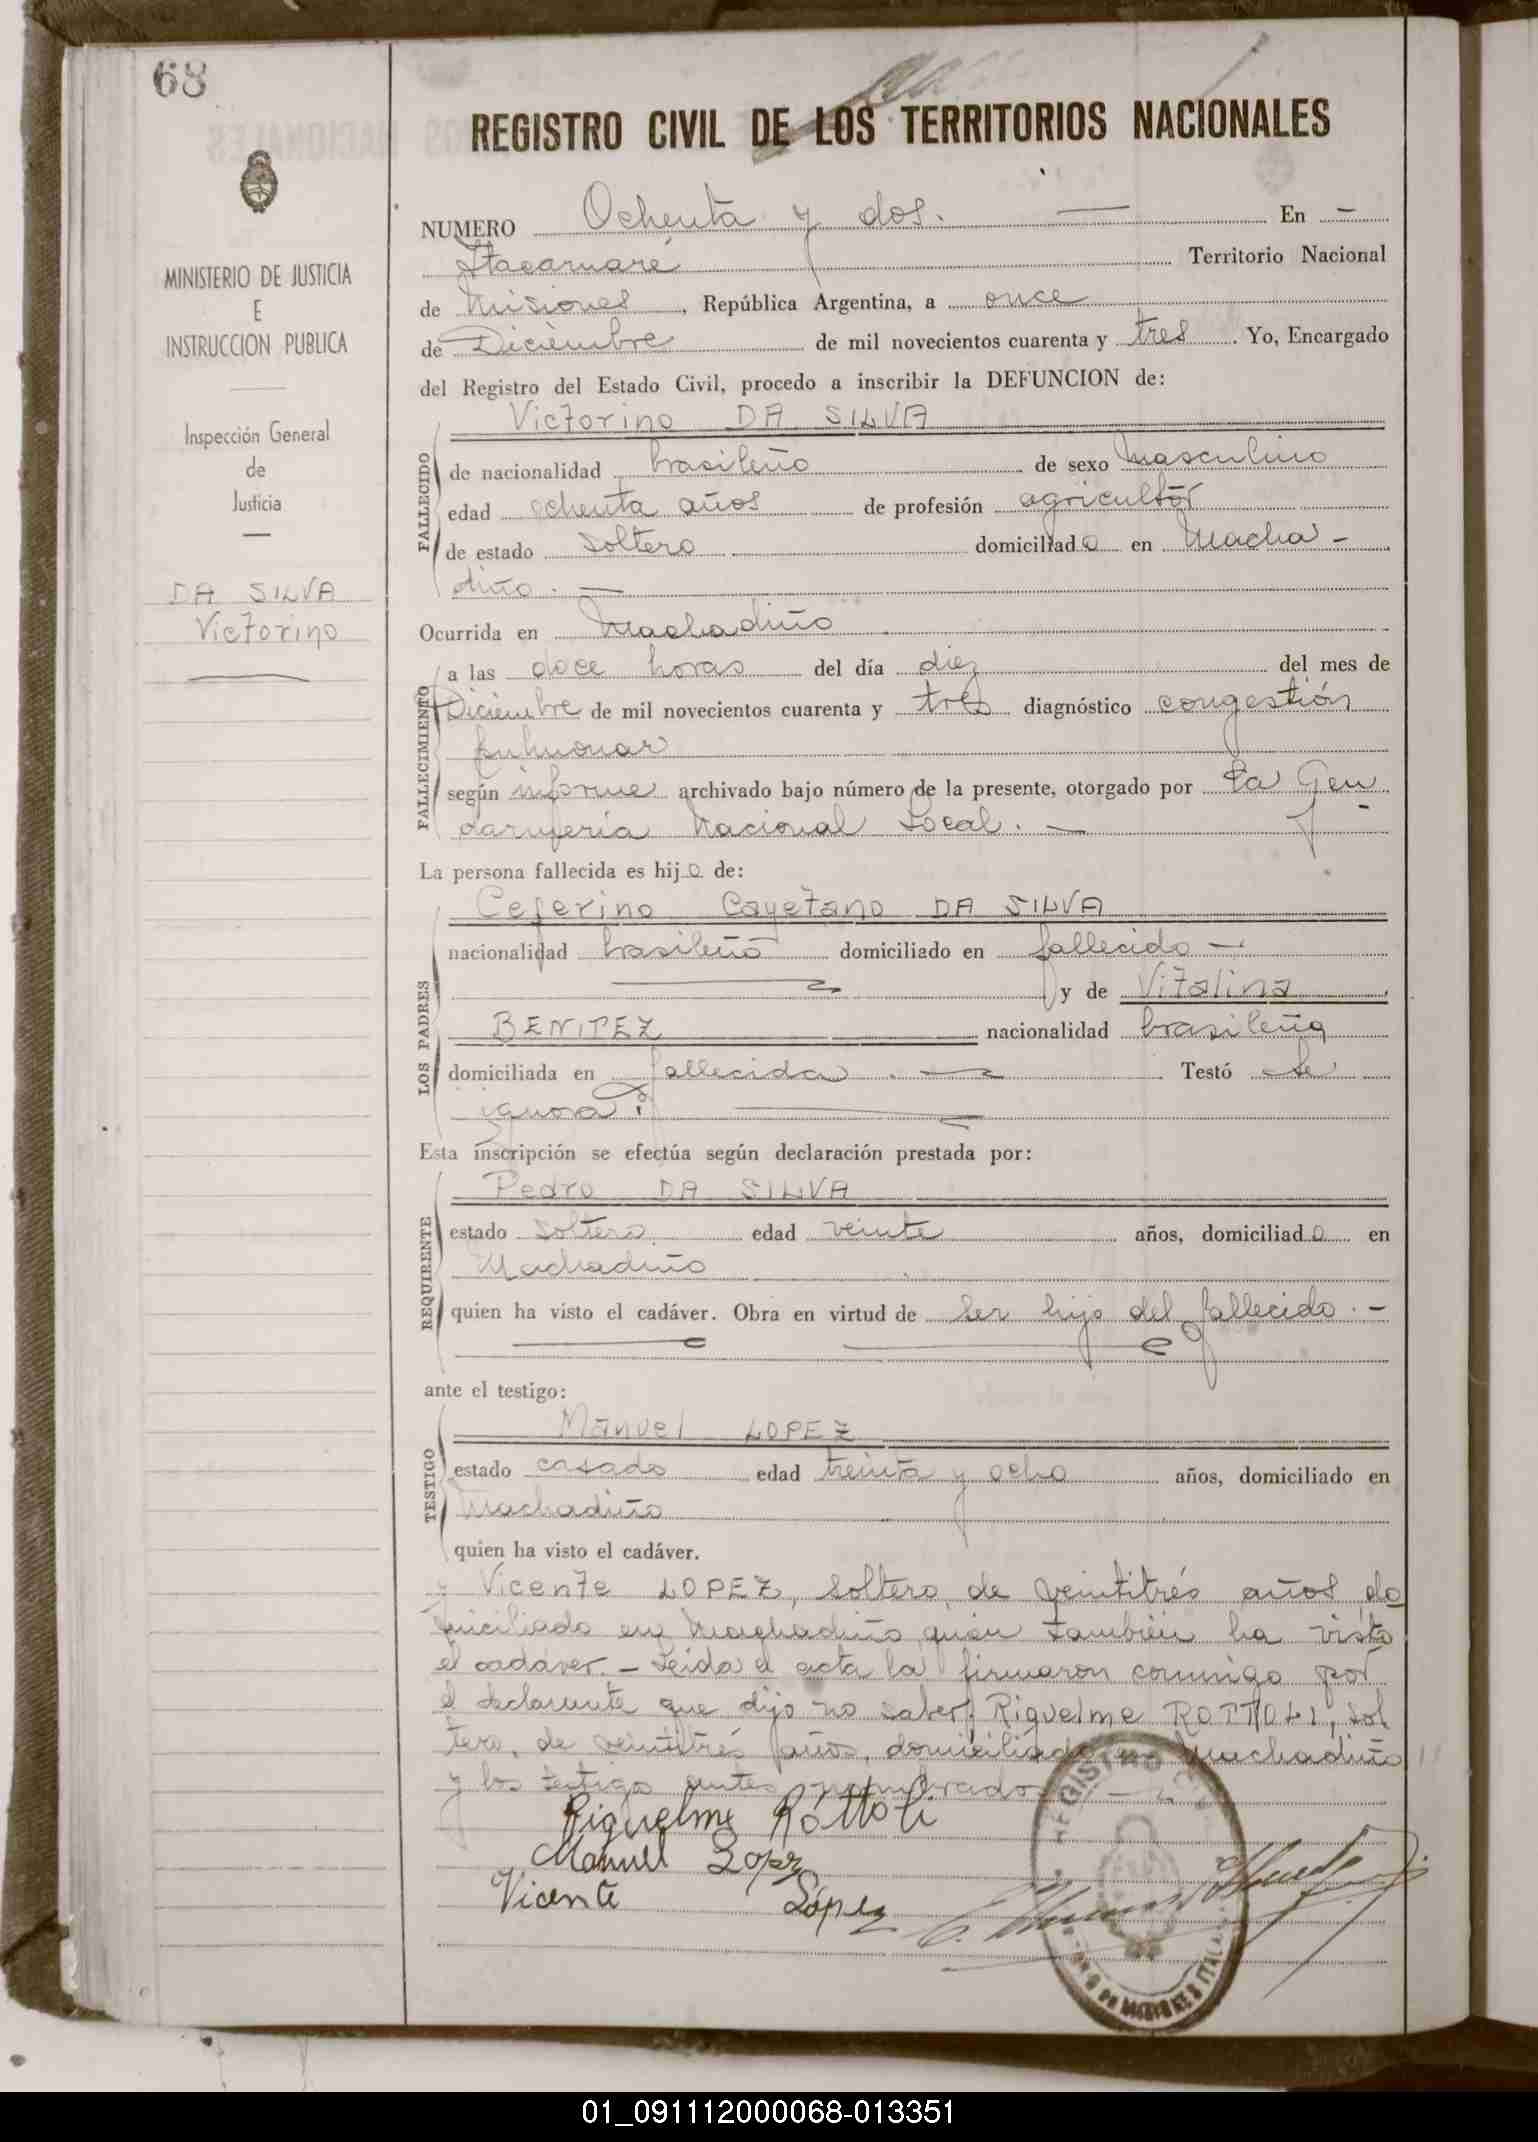 68
REGISTRO CIVIL DE LOS TERRITORIOS NACIONALES
MINISTERIO DE JUSTICIA
E
INSTRUCCION PUBLICA
Inspección General
de
Justicia
DA SILVA
Victorino
NUMERO Ochenta y dos. — En —
Itacaruaré Territorio Nacional
de Misiones, República Argentina, a once
de Diciembre de mil novecientos cuarenta y tres. Yo, Encargado
del Registro del Estado Civil, procedo a inscribir la DEFUNCION de:
Victorino DA SILVA
FALLECIDO
de nacionalidad brasileño de sexo masculino
edad ochenta años de profesión agricultor
de estado soltero domiciliado en Macha-
diño. —
Ocurrida en Machadiño
FALLECIMIENTO
a las doce horas del día diez del mes de
Diciembre de mil novecientos cuarenta y tres diagnóstico congestión
pulmonar
según informe archivado bajo número de la presente, otorgado por la Gen
darmería Nacional Local. —
La persona fallecida es hijo de:
LOS PADRES
Ceferino Cayetano DA SILVA
nacionalidad brasileño domiciliado en fallecido —
y de Vitalina
BENITEZ nacionalidad brasileña
domiciliada en fallecida. — Testó se
ignora.
Esta inscripción se efectúa según declaración prestada por:
REQUIRENTE
Pedro DA SILVA
estado soltero edad veinte años, domiciliado en
Machadiño
quien ha visto el cadáver. Obra en virtud de ser hijo del fallecido. —
ante el testigo:
TESTIGO
Manuel LOPEZ
estado casado edad treinta y ocho años, domiciliado en
Machadiño
quien ha visto el cadáver.
y Vicente LOPEZ, soltero, de veintitrés años do
miciliado en Machadiño, quien también ha visto
el cadáver. — Leida el acta la firmaron conmigo por
el declarante que dijo no saber, Riquelme ROTTOLI, sol
tero, de veintitrés años, domiciliado en Machadiño
y los testigo antes nombrado
Riquelme Rottoli
Manuel Lopez
Vicente López
REGISTRO
01_091112000068-013351